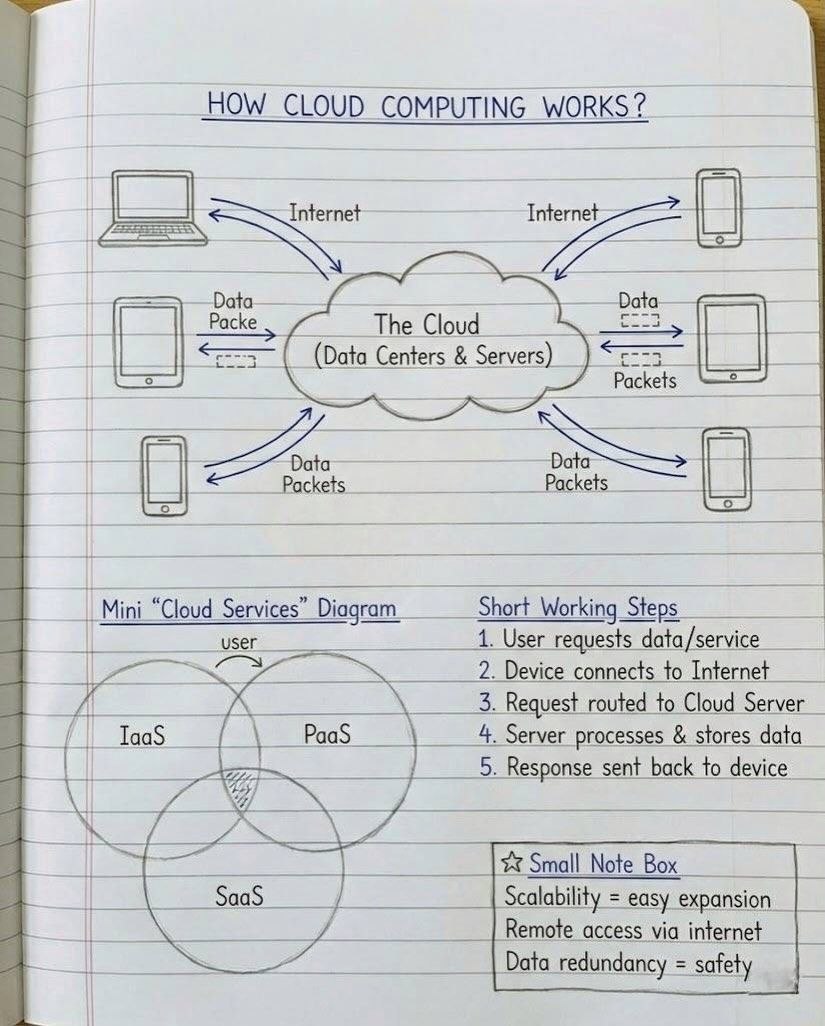 HOW CLOUD COMPUTING WORKS?
Internet
Internet
Data
Packe
The Cloud
(Data Centers & Servers)
Data
Packets
Data
Packets
Data
Packets
Mini “Cloud Services” Diagram
user
IaaS
PaaS
SaaS
Short Working Steps
1. User requests data/service
2. Device connects to Internet
3. Request routed to Cloud Server
4. Server processes & stores data
5. Response sent back to device
☆ Small Note Box
Scalability = easy expansion
Remote access via internet
Data redundancy = safety